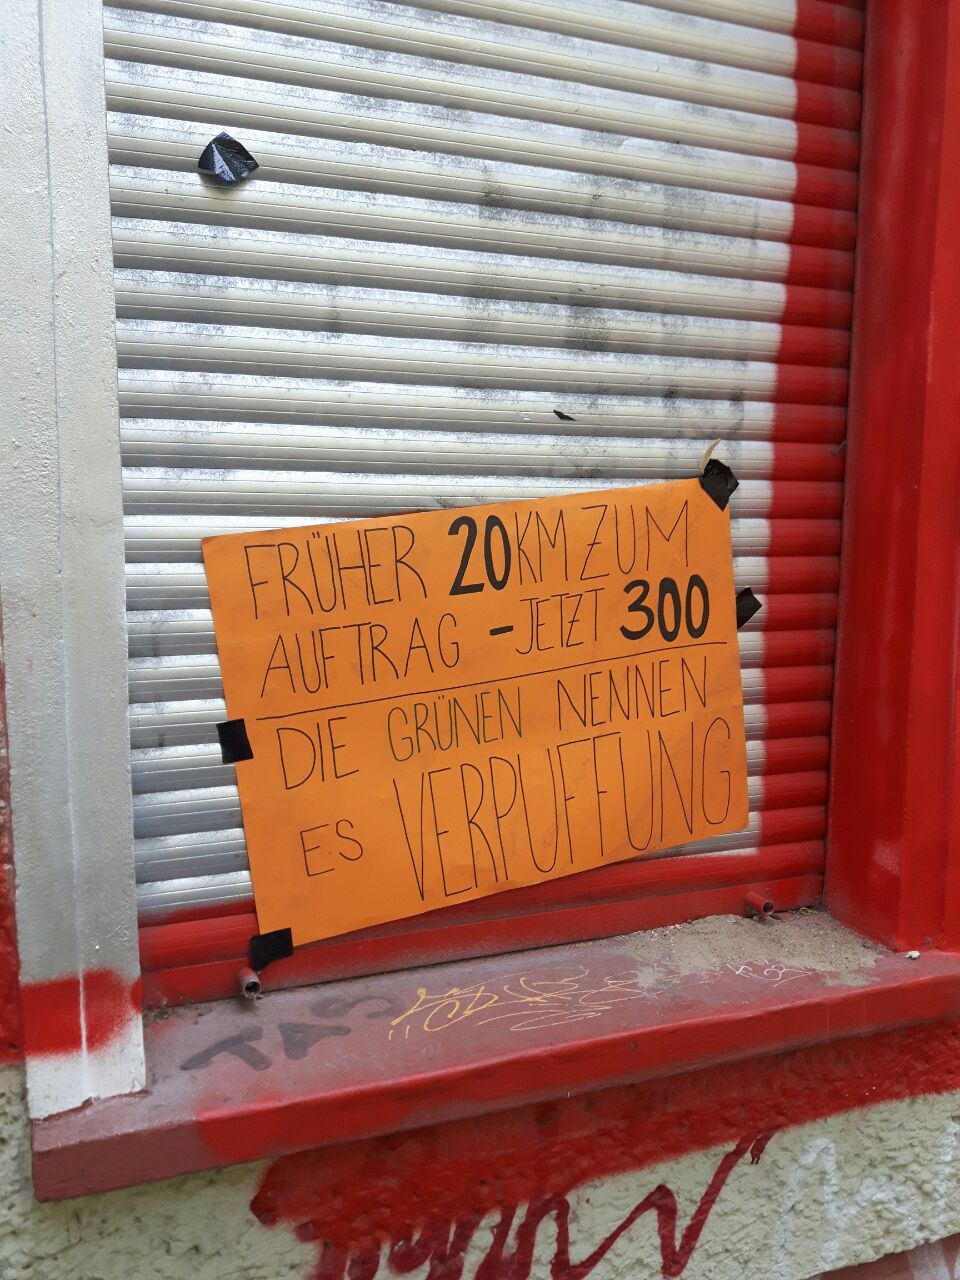 FRÜHER 20KM ZUM
AUFTRAG - JETZT 300
DIE GRÜNEN NENNEN
ES VERPUFFUNG
TAS